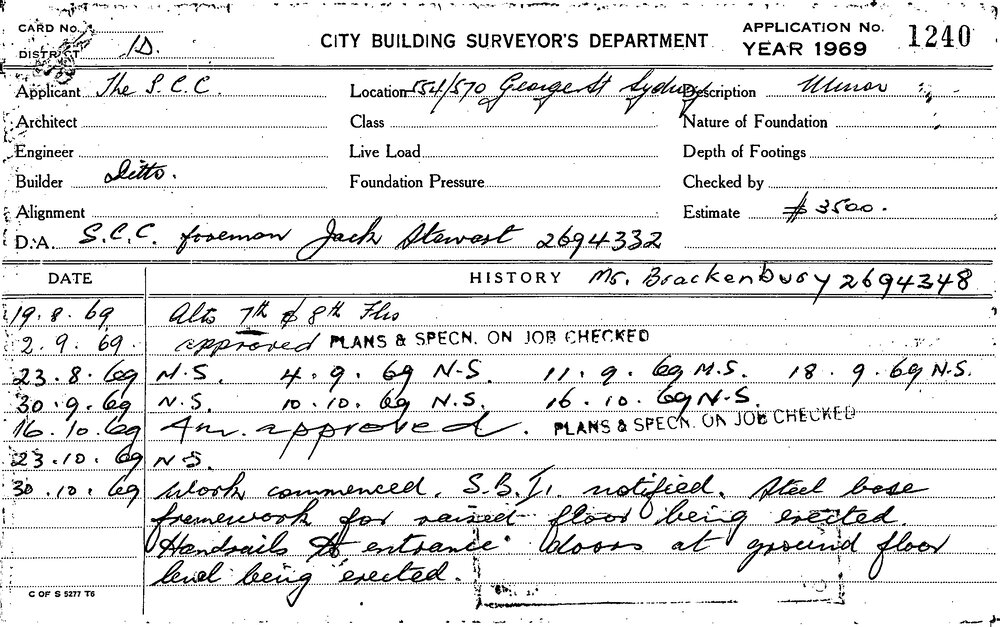 CARD No.
DISTRICT 1D.
CITY BUILDING SURVEYOR'S DEPARTMENT
APPLICATION No. 1240
YEAR 1969
Applicant The S.C.C. Location 554/570 George St Sydney Description Minor
Architect Class Nature of Foundation
Engineer Live Load Depth of Footings
Builder Ditto. Foundation Pressure Checked by
Alignment Estimate $ 3500.
D.A. S.C.C. foreman Jack Stewart 2694332
DATE HISTORY Mr. Brackenbury 2694348
19.8.69 Alts 7th & 8th Flrs
2.9.69. approved PLANS & SPECN. ON JOB CHECKED
23.8.69 N.S. 4.9.69 N-S. 11.9.69 N.S. 18.9.69 N.S.
30.9.69 N.S. 10.10.69 N.S. 16.10.69 N-S.
16.10.69 Am. approved. PLANS & SPECN. ON JOB CHECKED
23.10.69 N-S.
30.10.69 Work commenced. S.B.I. notified. Steel base
framework for raised floor being erected.
Handrails to entrance doors at ground floor
level being erected.
C OF S 5277 T6